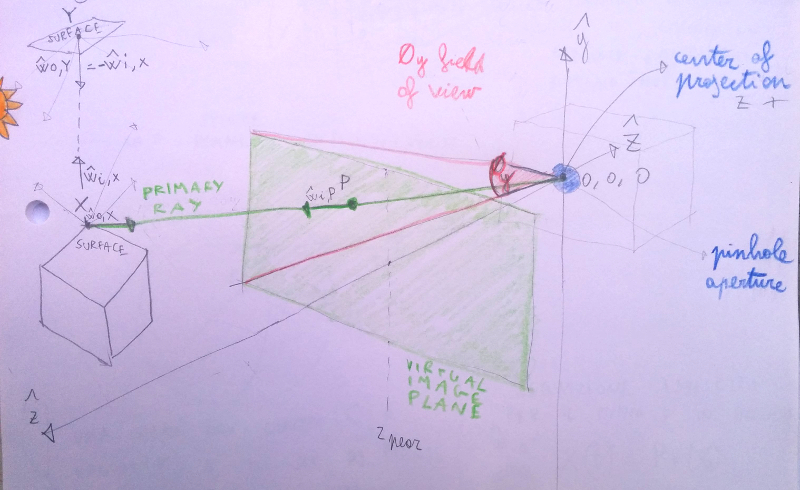 Y
SURFACE
ŵo,Y = -ŵi,x
ŵi,x
X
ŵo,X
SURFACE
PRIMARY
RAY
ŵi,P
P
θy field
of view
θy
ŷ
center of
projection
z +
ẑ
0, 0, 0
pinhole
aperture
VIRTUAL
IMAGE
PLANE
ẑ
z near